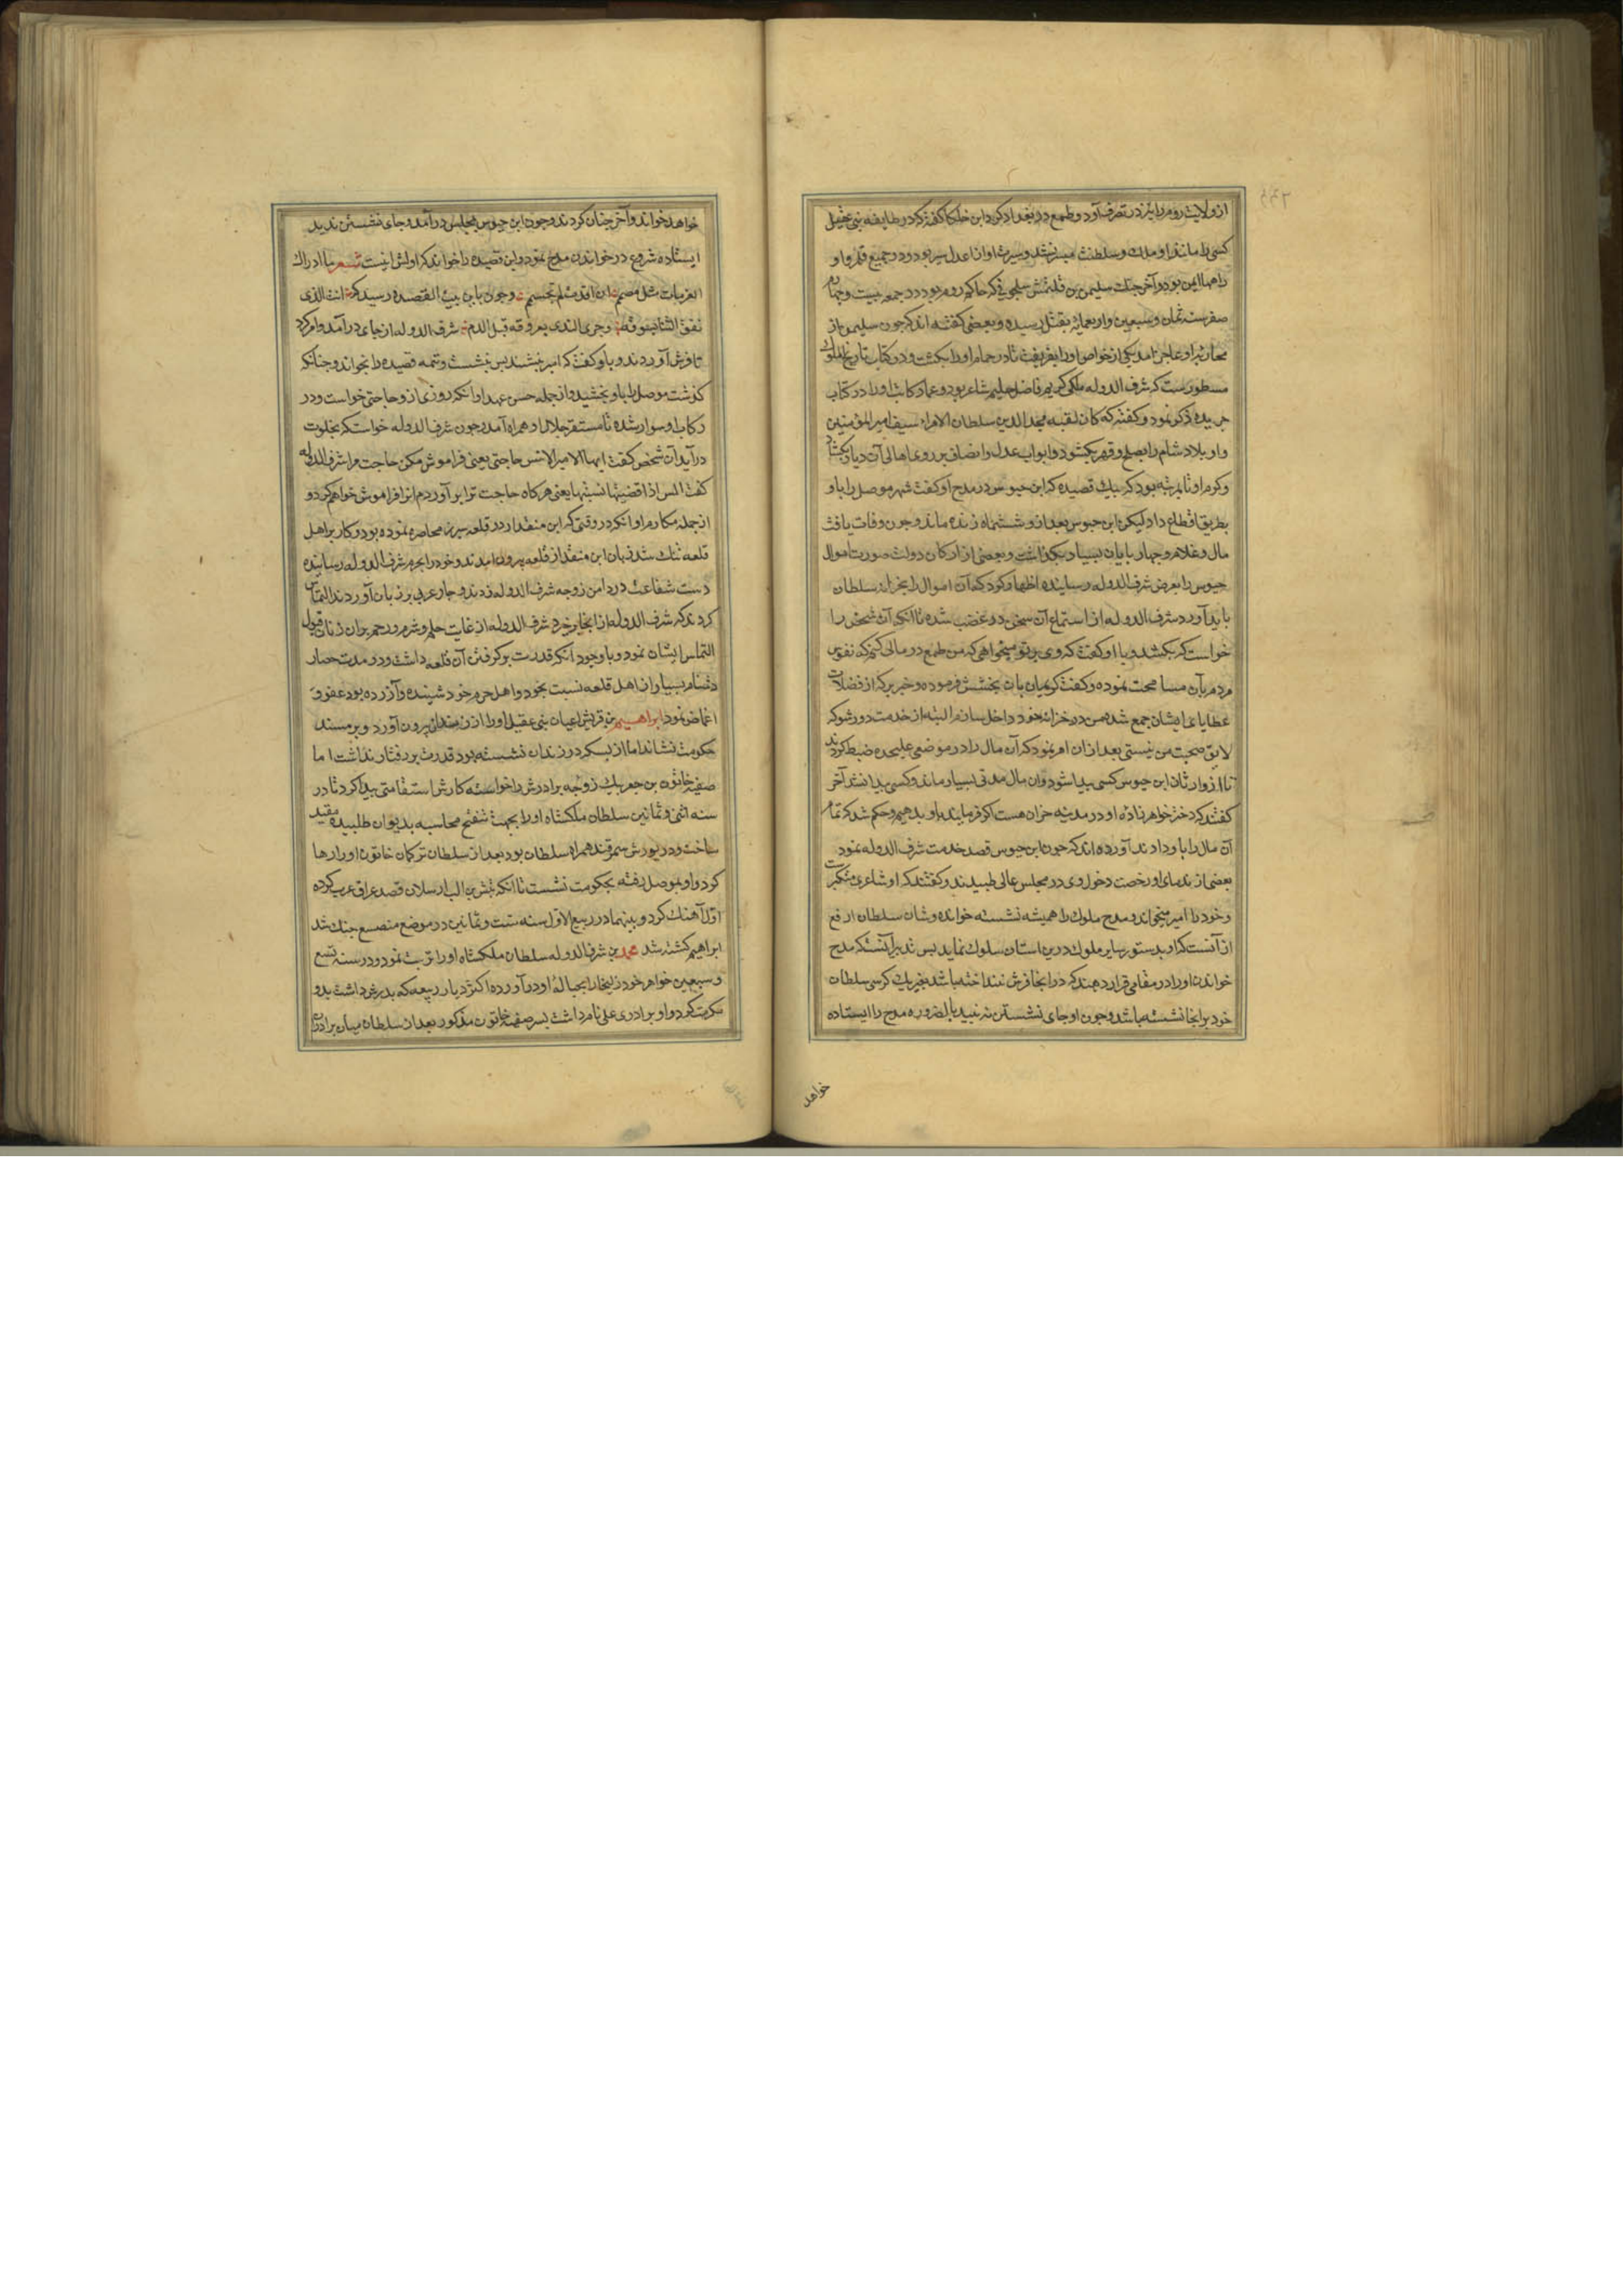 از ولایت روم را نیز در تصرف آورد و طمع در بغداد کرد ابن خلکان گفته که در طایفه بنی عقیل
کسی را مانند او ملك و سلطنت میسر نشد و سیرت او از اعدل سیر بود و در جمیع قلمرو او
راهها ایمن بود و آخر جنك سلیمن بن قتلمش سلجوقی که حاکم روم بود در جمعه بیست و چهارم
صفر سنه ثمان و سبعین و اربعمائه بقتل رسیده و بعضی گفته اند که چون سلیمن از
محاربه او عاجز آمد یکی از خواص او را بفریفت تا در حمام او را بکشت و در کتاب تاریخ الملوك
مسطورست که شرف الدوله ملکی کریم فاضل حلیم شاعر بود و عماد کاتب او را در کتاب
جریده ذکر نمود و گفته که کان لقبه مجد الدین سلطان الامراء سیف امیر المؤمنین
و او بلاد شام را بصلح و قهر بکشود و ابواب عدل و انصاف بر روی اهالی آن دیار بکشاد
و کرم او تا بمرتبه بود که بیك قصیده که ابن حیوس در مدح او گفت شهر موصل را باو
بطریق اقطاع داد لیکن ابن حیوس بعد از و ششماه زنده ماند و چون وفات یافت
مال و غلام و چهار پایان بسیار بگذاشت و بعضی از ارکان دولت صورت اموال
حیوس را بعرض شرف الدوله رسانیده اظهار کرد که آن اموال را بخزانه سلطان
باید آورد شرف الدوله از استماع آن سخن در غضب شده تا آنکه آن شخص را
خواست که بکشد و با او گفت که وی بر تو میخواهی که من طمع در مالی کنم که نفوس
مردم بآن مسامحت نموده و گفت کریمان بان بخشش فرموده و خبر برکه از فضلات
عطایای ایشان جمع شده من در خزانه خود داخل سازم البته از خدمت دور شو که
لایق صحبت من نیستی بعد از ان امر نمود که آن مال را در موضعی علیحده ضبط کردند
تا از وارثان ابن حیوس کسی پیدا شود و ان مال مدتی بسیار ماند و کسی پیدا نشد آخر
گفتند که دختر خواهر زاده او در مدینه حران هست اکر فرمایند باو بدهیم و حکم شد که تمام
آن مال را باو دادند آورده اند که چون ابن حیوس قصد خدمت شرف الدوله نمود
بعضی از ندمای او رخصت دخول وی در مجلس عالی طبیدند و گفتند که او شاعری متکبرست
و خود را امیر میخواند و مدح ملوك را همیشه نشسته خوانده و شان سلطان ارفع
از آنست که او بدستور سایر ملوك درین استان سلوك نماید پس تدبیر آنست که مدح
خواندن او را در مقامی قرار دهند که در انجا فرش نینداخته باشد بغیر یك کرسی سلطان
خود بر انجا نشسته باشد و چون او جای نشستن نه بیند بالضروره مدح را ایستاده
خواهد
خواهد خواند و آخر چنان کردند و چون ابن حیوس بمجلس در آمد و جای نشستن ندید
ایستاده شروع در خواندن مدح نمود و این قصیده را خواند که اولش اینست شعر ما ادراك
العزمات مثل مصمم ان اقدمت لم تجسم و چون باین بیت القصیده رسید که انت الذی
نفق الثنا بسوقه و جری الندی بعروقه قبل الدم شرف الدوله از جای در آمد و امر کرد
تا فرش آوردند و باو گفت که امیر بنشیند پس بنشست و تتمه قصیده را بخواند و چنانکه
گذشت موصل را باو بخشید و از جمله حسن عهد او انکه روزی از و حاجتی خواست و در
رکاب او سوار شده تا مستقر جلال او همراه آمد و چون شرف الدوله خواست که بخلوت
در آید آن شخص گفت ایها الامیر لا تنس حاجتی یعنی فراموش مکن حاجت مرا شرف الدوله
گفت الس اذا قضیتها نسیتها یعنی هر کاه حاجت ترا بر آوردم انرا فراموش خواهم کرد و
از جمله مکارم او انکه در وقتی که ابن منقذ را در قلعه شیزر محاصره نموده بود و کار بر اهل
قلعه تنك شد زنان ابن منقذ از قلعه بیرون امدند و خود را بحرم شرف الدوله رسانیده
دست شفاعت در دامن زوجه شرف الدوله زدند و جار عربی بر زبان آوردند التماس
کردند که شرف الدوله از انجا بر خیزد شرف الدوله از غایت حلم و شرم و رحم بران زنان قبول
التماس ایشان نمود و با وجود آنکه قدرت بر گرفتن آن قلعه داشت و در مدت حصار
دشنام بسیار از اهل قلعه نسبت بخود و اهل حرم خود شنیده و آزرده بود عفو و
اغماض نمود ابراهیم بن قریش اعیان بنی عقیل او را از زندان بیرون آورد و بر مسند
حکومت نشاند اما از بسکه در زندان نشسته بود قدرت بر رفتار نداشت اما
صفیه خاتون بن جعر بیك زوجه برادرش را خواسته کارش استقامتی پیدا کرد تا در
سنه اثنی و ثمانین سلطان ملکشاه او را بجهت تنقیح محاسبه بدیوان طلبیده مقید
ساخت و در یورش سمرقند همراه سلطان بود بعد از سلطان ترکان خاتون او را رها
کرد و او بموصل رفته بحکومت نشست تا آنکه تتش بن الب ارسلان قصد عراق عرب کرده
اول آهنك کرد و بینهما در ربیع الاول سنه ست و ثمانین در موضع منصع جنك شد
ابراهیم کشته شد محمد بن شرف الدوله سلطان ملکشاه او را تربیت نمود و در سنه تسع
و سبعین خواهر خود زلیخا را بحباله او در آورده اکثر دیار ربیعه که پدرش داشت بدو
مکرمت کرد و او برادری علی نام داشت پسر صفیه خاتون مذکور بعد از سلطان میان برادران